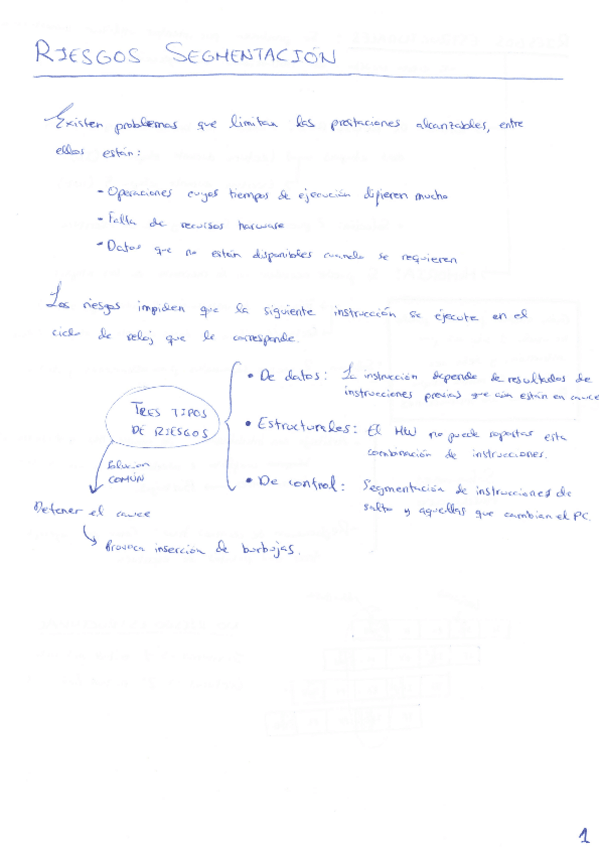 RIESGOS SEGMENTACIÓN
Existen problemas que limitan las prestaciones alcanzables, entre
ellos están:
- Operaciones cuyos tiempos de ejecución difieren mucho
- Falta de recursos harware
- Datos que no están disponibles cuando se requieren
Los riesgos impiden que la siguiente instrucción se ejecute en el
ciclo de reloj que le corresponde.
TRES TIPOS
DE RIESGOS
• De datos: La instrucción depende de resultados de
instrucciones previas que aún están en cauce
• Estructurales: El HW no puede soportar esta
combinación de instrucciones.
• De control: Segmentación de instrucciones de
salto y aquellas que cambian el PC.
Solución
COMÚN
Detener el cauce
Provoca inserción de burbujas.
1